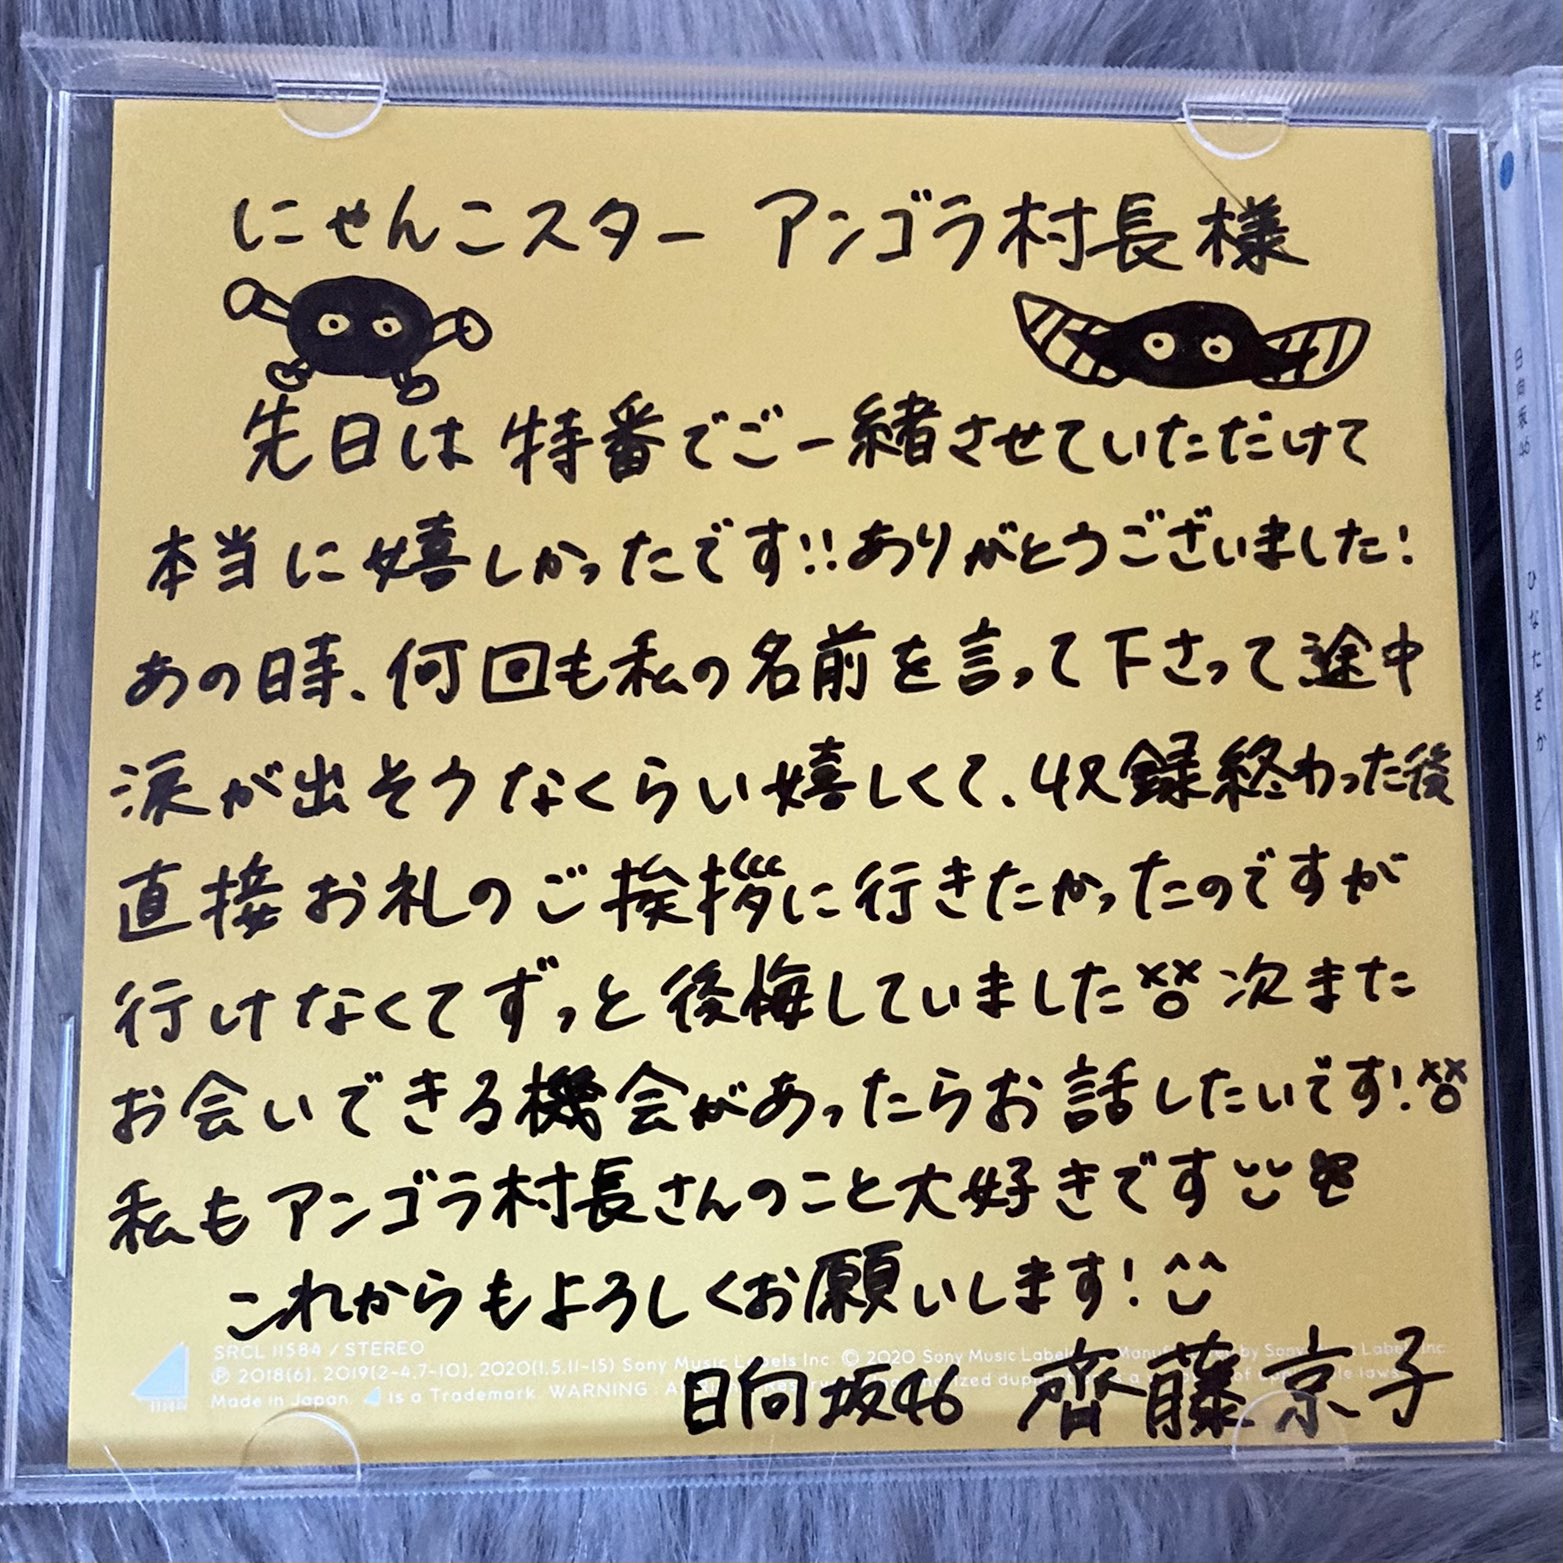 にゃんこスター アンゴラ村長様
先日は特番でご一緒させていただけて
本当に嬉しかったです!!ありがとうございました!
あの時、何回も私の名前を言って下さって途中
涙が出そうなくらい嬉しくて、収録終わった後
直接お礼のご挨拶に行きたかったのですが
行けなくてずっと後悔していました 次また
お会いできる機会があったらお話したいです!
私もアンゴラ村長さんのこと大好きです
これからもよろしくお願いします!
SRCL 11584 / STEREO
Ⓟ 2018(6), 2019(2-4,7-10), 2020(1,5,11-15) Sony Music Labels Inc. © 2020 Sony Music Labels
Made in Japan. is a Trademark. WARNING:
日向坂46 齊藤京子
日向坂46
ひなたざか